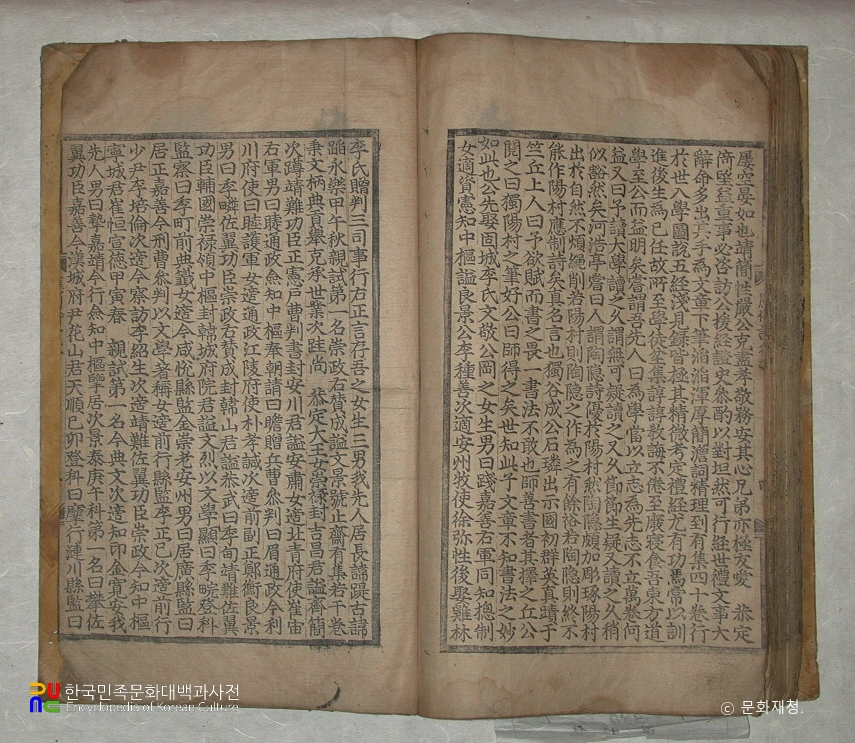 屢空晏如也靖簡性嚴公克盡孝敬務安其心兄弟亦極友愛 恭定
倚望益重事必咨訪公援經證史參酌以對坦然可行經世禮文事大
辭命多出其手爲文章下筆滔滔渾厚簡澹詞精理到有集四十卷行
於世入學圖說五經淺見錄皆極其精微考定禮經尤有功焉常以訓
進後生爲己任故所至學徒坌集諄諄敎誨不倦至廢寢食吾東方道
學至公而益明矣嘗謂吾先人曰爲學當以立志爲先志不立萬卷何
益又曰予讀大學讀之久謂無可疑讀之又久節節生疑又讀之久稍
似豁然矣河浩亭嘗曰人謂陶隱詩優於陽村然陶隱頗加彫琢陽村
出於自然不煩繩削若陽村則陶隱之作爲之有餘裕若陶隱則終不
能作陽村應制詩矣眞名言也獨谷成公石璘出示國初群英眞蹟于
竺丘上人曰予欲賦而書之畏一書法不敢也師善書者其擇之丘公
閱之曰獨陽村之筆好公曰師得之矣世知此子文章不知書法之妙
如此也公先娶固城李氏文敬公岡之女生男曰踐嘉善右軍同知摠制
女適資憲知中樞謚良景公李種善次適安州牧使徐彌性後娶雞林
李氏贈判三司事行右正言存吾之女生三男我先人居長諱踶古諱
踊永樂甲午秋親試第一名崇政右賛成謚文景號止齋有集若干卷
秉文柄典貢擧克承世業次跬尙 恭定大王女崇祿封吉昌君謚齊簡
次蹲靖難功臣正憲戶曹判書封安川君謚安肅女適北靑府使崔宙
右軍男曰睦通政僉知中樞奉朝請曰瞻贈兵曹參判曰眉通政今利
川府使曰睦護軍女適通政江陵府使朴孝諴次適前副正鄭衝良景
男曰季疄佐翼功臣崇政右賛成封韓山君謚恭武曰季甸靖難佐翼
功臣輔國崇祿領中樞封韓城府院君謚文烈以文學顯曰季畹登科
監察曰季町前典籤女適今咸悅縣監金崇老安州男曰居廣縣監曰
居正嘉善今刑曹參判以文學著稱女適前行縣監李正已次適前行
少尹李培倫次適今察訪李紹生次適靖難佐翼功臣崇政今知中樞
寧城君崔恒宣德甲寅春 親試第一名今典文次適知印金賓安我
先人男曰摯嘉靖今行僉知中樞擥居次景泰庚午科第一名曰攀佐
翼功臣嘉善今漢城府尹花山君天順己卯登科曰擪行漣川縣監曰
한국민족문화대백과사전
Encyclopedia of Korean Culture
ⓒ 문화재청.